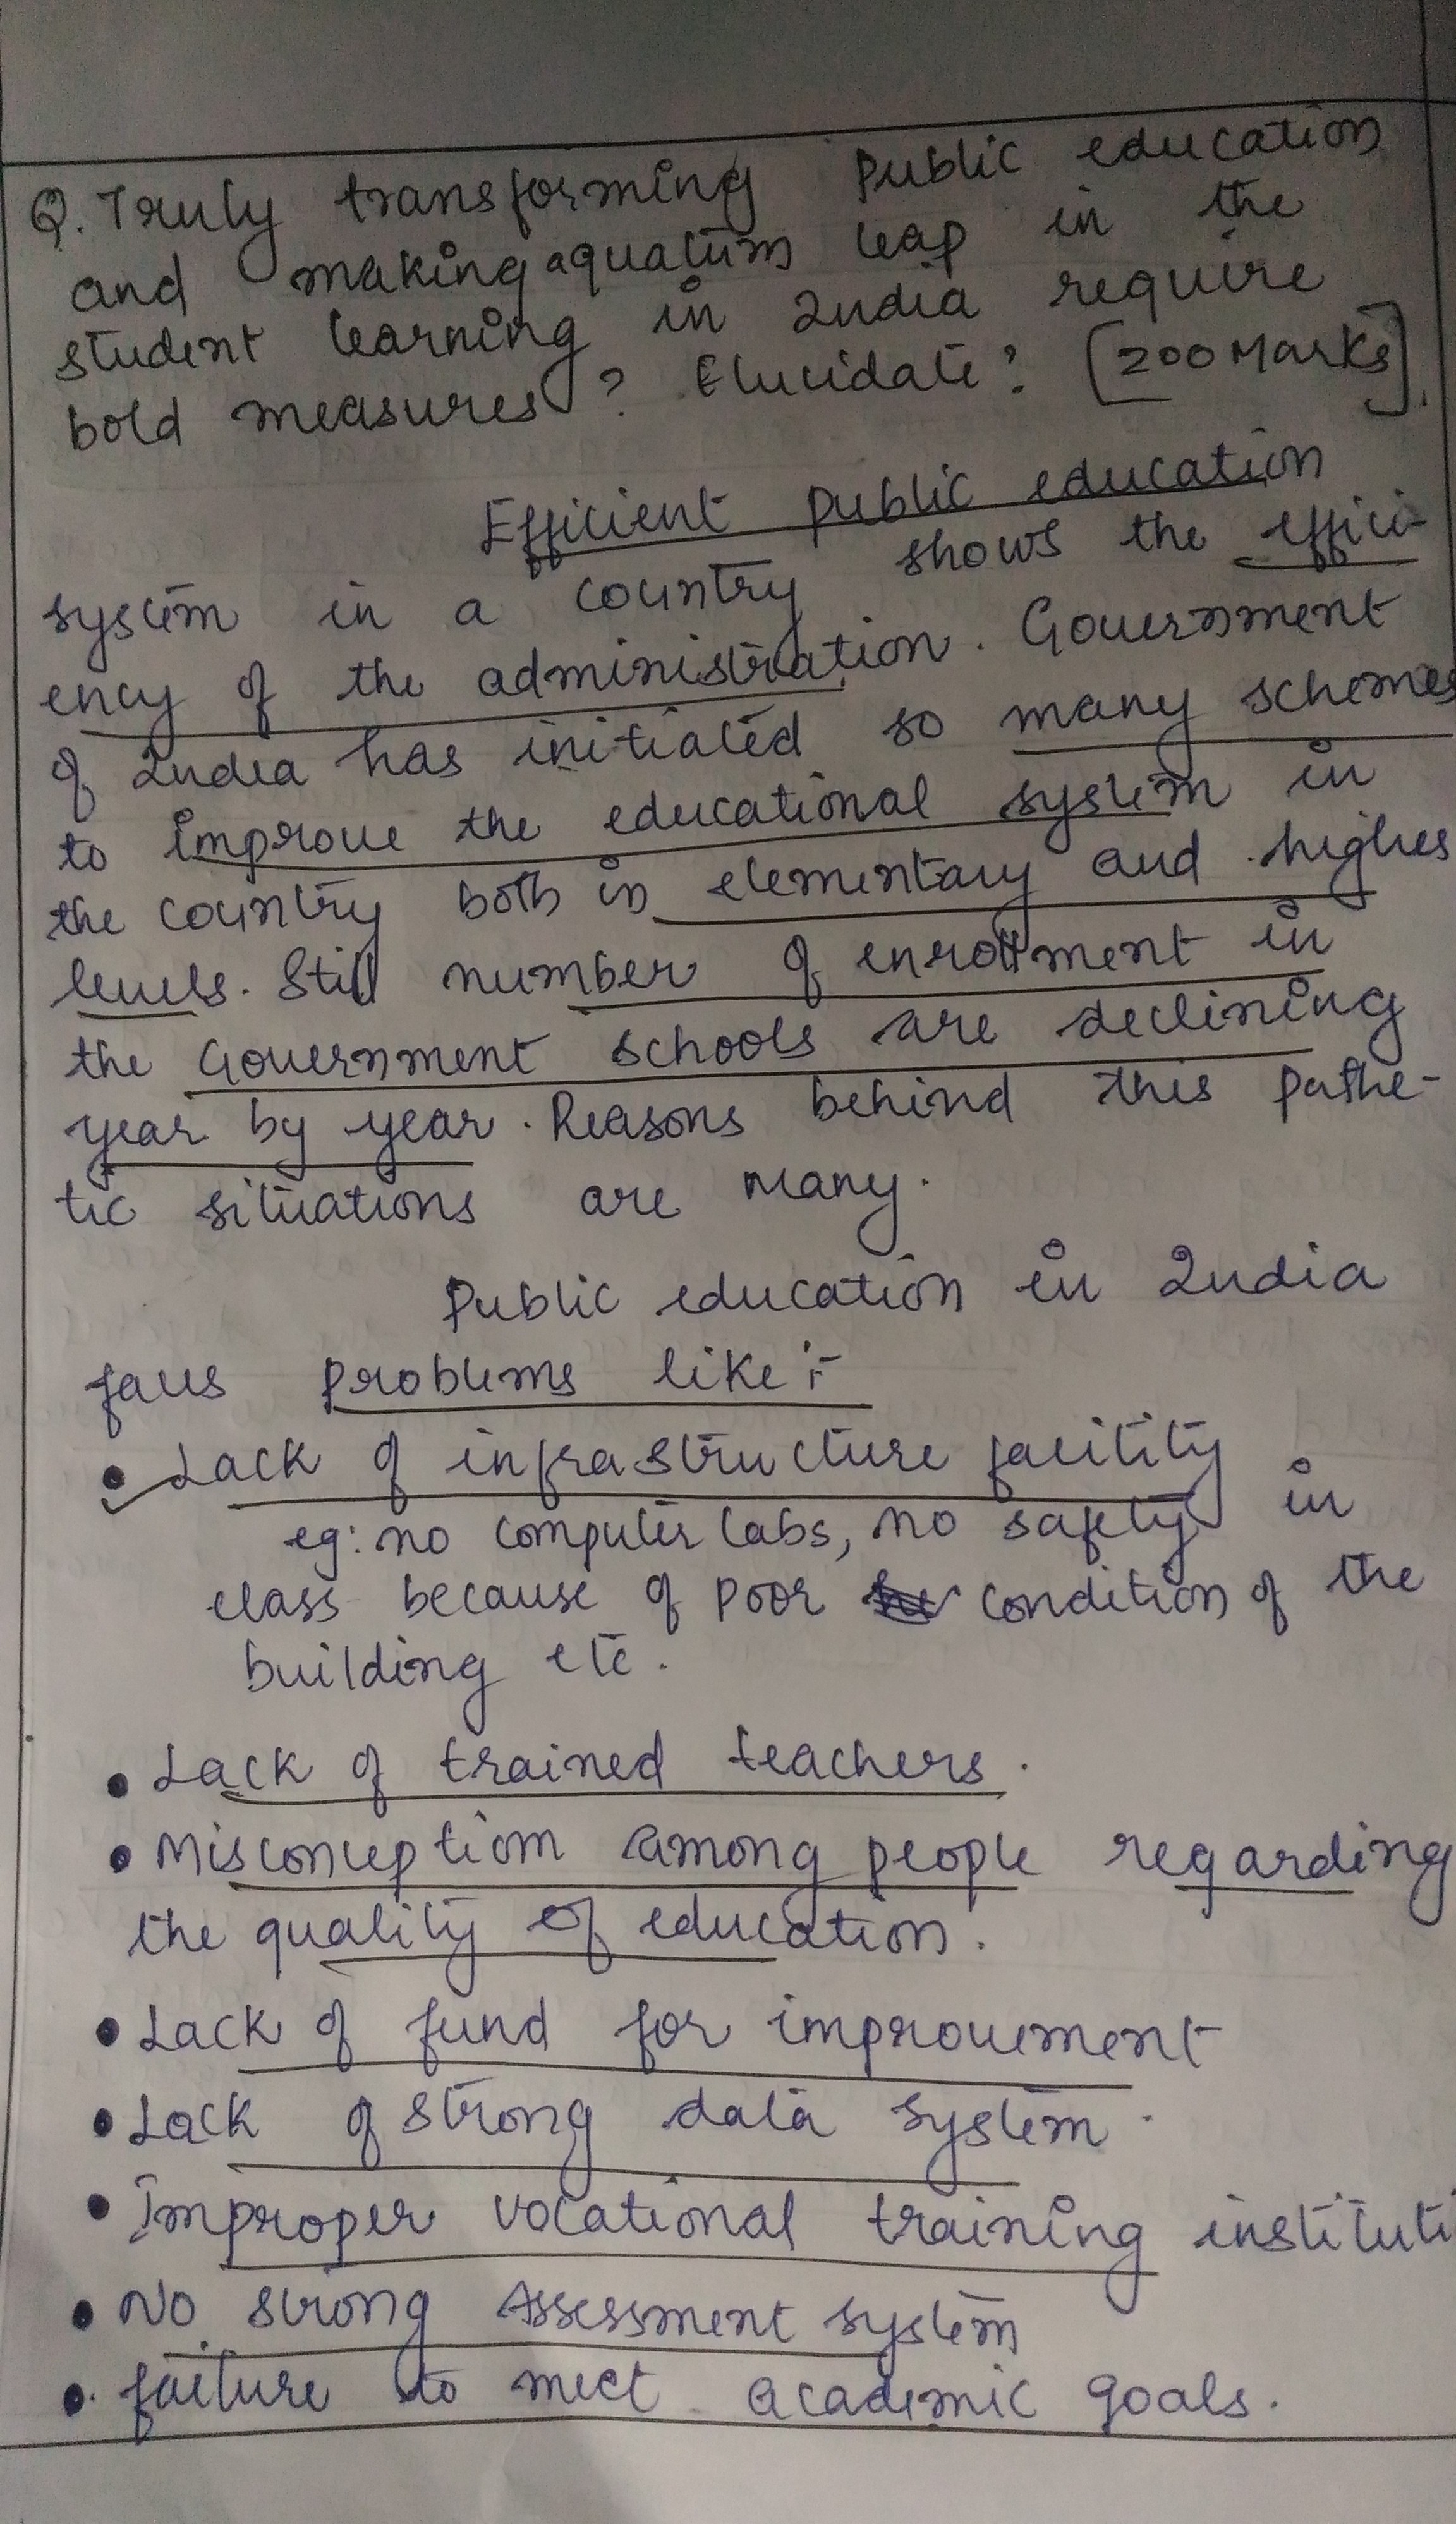 Q. Truly transforming public education
and making a quatum leap in the
student learning in India require
bold measures? Elucidate? [200 Marks].
Efficient public education
system in a country shows the effici-
ency of the administration. Government
of India has initiated so many schemes
to improve the educational system in
the country both in elementary and higher
levels. Still number of enrollment in
the Government schools are declining
year by year. Reasons behind this pathe-
tic situations are many.
Public education in India
faces problems like:-
• Lack of infrastructure facility
eg: no computer labs, no safety in
class because of poor condition of the
building etc.
• Lack of trained teachers.
• Misconception among people regarding
the quality of education.
• Lack of fund for improvement
• Lack of strong data system.
• Improper vocational training instituti
• No strong Assessment system
• failure to meet academic goals.